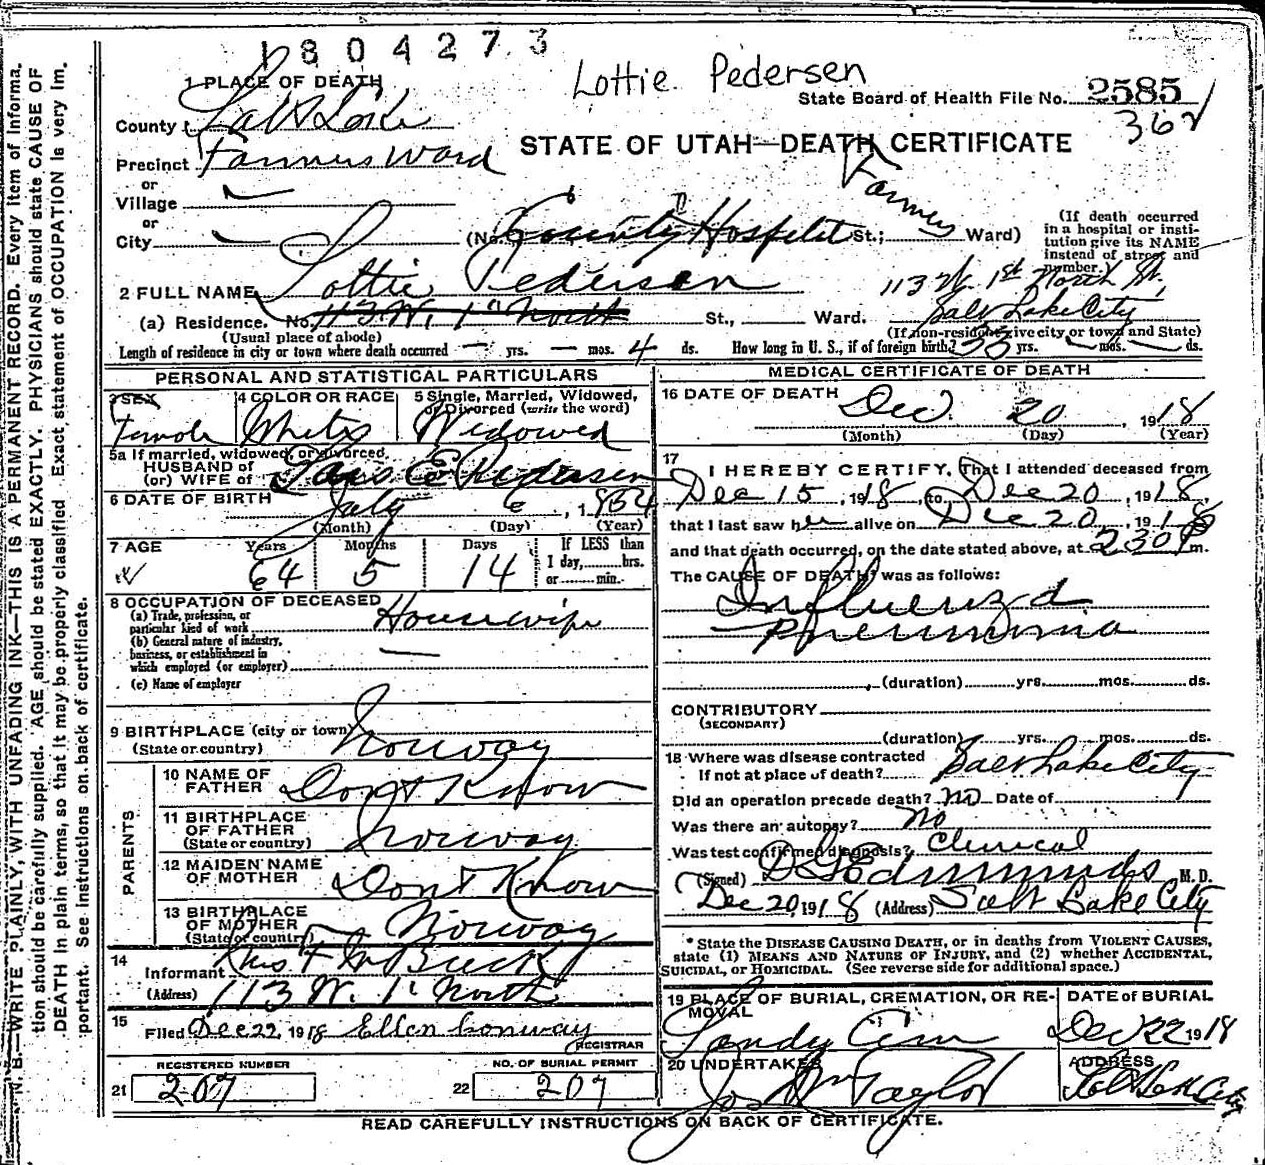 1804273
Lottie Pedersen
1 PLACE OF DEATH
State Board of Health File No. 2585
362
County Salt Lake
STATE OF UTAH—DEATH CERTIFICATE
Precinct Farmers Ward
or
Village —
or
City —
(No. County Hospital St.; Farmers Ward)
(If death occurred in a hospital or institution give its NAME instead of street and number.)
2 FULL NAME Lottie Pedersen
113 W. 1st North St,
Salt Lake City
(a) Residence. No. 113 W. 1st North St., Ward.
(Usual place of abode)
(If non-resident give city or town and State)
Length of residence in city or town where death occurred — yrs. — mos. 4 ds. How long in U. S., if of foreign birth? 35 yrs. — mos. — ds.
PERSONAL AND STATISTICAL PARTICULARS
3 SEX
Female
4 COLOR OR RACE
White
5 Single, Married, Widowed, or Divorced (write the word)
Widowed
5a If married, widowed, or divorced,
HUSBAND of
(or) WIFE of Lars E Pedersen
6 DATE OF BIRTH
July 6, 1854
(Month) (Day) (Year)
7 AGE Years Months Days
64 5 14
If LESS than
1 day, hrs.
or min.
8 OCCUPATION OF DECEASED
(a) Trade, profession, or particular kind of work Housewife
(b) General nature of industry, business, or establishment in which employed (or employer) —
(c) Name of employer
9 BIRTHPLACE (city or town)
(State or country) Norway
PARENTS
10 NAME OF FATHER Don't Know
11 BIRTHPLACE OF FATHER
(State or country) Norway
12 MAIDEN NAME OF MOTHER Don't Know
13 BIRTHPLACE OF MOTHER
(State or country) Norway
14
Informant Buck
(Address) 113 W. 1st North
15
Filed Dec 22, 1918 Ellen Conway
REGISTRAR
REGISTERED NUMBER
21 207
NO. OF BURIAL PERMIT
22 207
MEDICAL CERTIFICATE OF DEATH
16 DATE OF DEATH
Dec. 20 1918
(Month) (Day) (Year)
17
I HEREBY CERTIFY, That I attended deceased from
Dec 15, 1918, to Dec 20, 1918,
that I last saw her alive on Dec 20, 1918
and that death occurred, on the date stated above, at 2 30 P m.
The CAUSE OF DEATH* was as follows:
Influenza
Pneumonia
(duration) yrs. mos. ds.
CONTRIBUTORY
(SECONDARY)
(duration) yrs. mos. ds.
18 Where was disease contracted
If not at place of death? Salt Lake City
Did an operation precede death? no Date of
Was there an autopsy? No
Was test confirmed diagnosis? Clinical
(Signed) Edmunds M. D.
Dec 20, 1918 (Address) Salt Lake City
* State the DISEASE CAUSING DEATH, or in deaths from VIOLENT CAUSES,
state (1) MEANS AND NATURE OF INJURY, and (2) whether ACCIDENTAL,
SUICIDAL, or HOMICIDAL. (See reverse side for additional space.)
19 PLACE OF BURIAL, CREMATION, OR REMOVAL
Sandy Cem
DATE of BURIAL
Dec 22 1918
20 UNDERTAKER
Jos Wm Taylor
ADDRESS
Salt Lake City
READ CAREFULLY INSTRUCTIONS ON BACK OF CERTIFICATE.
N. B.—WRITE PLAINLY, WITH UNFADING INK—THIS IS A PERMANENT RECORD. Every item of informa-
tion should be carefully supplied. AGE should be stated EXACTLY. PHYSICIANS should state CAUSE OF
DEATH in plain terms, so that it may be properly classified. Exact statement of OCCUPATION is very im-
portant. See instructions on back of certificate.